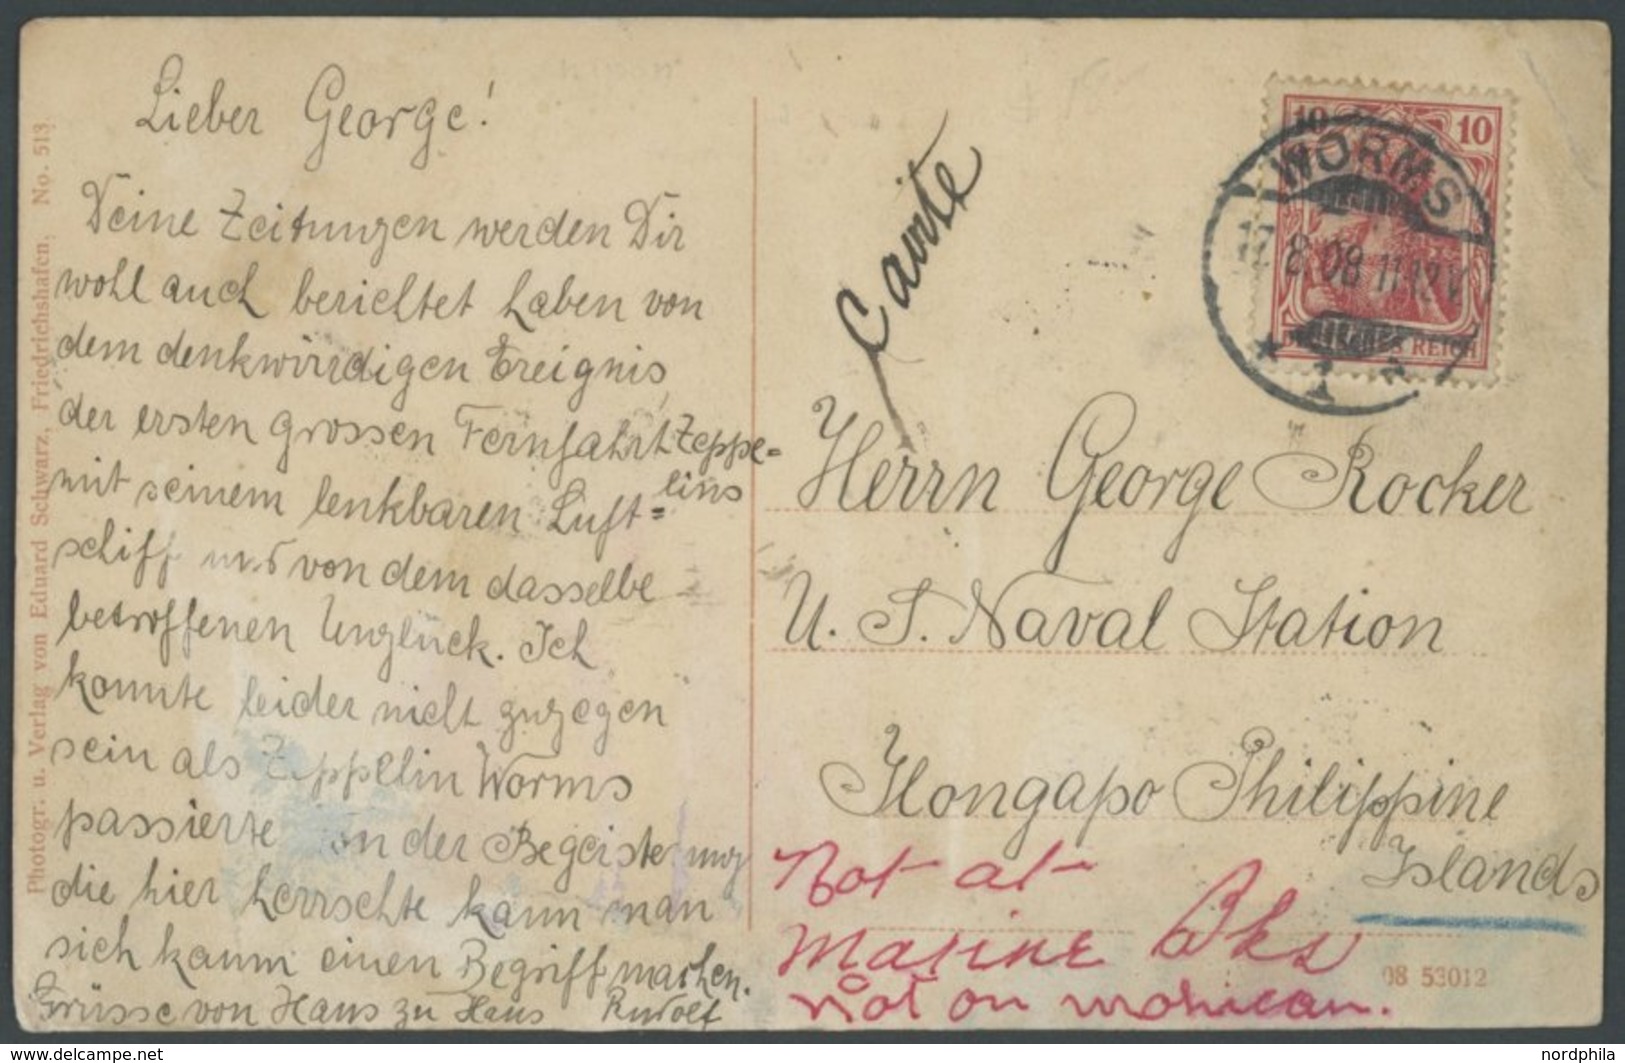 Lieber George!
Deine Zeitungen werden Dir
wohl auch berichtet haben von
dem denkwürdigen Ereignis,
der ersten grossen Fernfahrt Zeppe=
lins
mit seinem lenkbaren Luft=
schiff und von dem dasselbe
betroffenen Unglück. Ich
konnte leider nicht zugegen
sein als Zeppelin Worms
passierte von der Begeisterung
die hier herrschte kann man
sich kaum einen Begriff machen.
Grüsse von Haus zu Haus Rudolf
Photogr. u. Verlag von Eduard Schwarz, Friedrichshafen, No. 513.
10 10
DEUTSCHES REICH
WORMS
17.8.08 11-12V
* 1
Cavite
Herrn George Rocker
U. S. Naval Station
Olongapo Philippine
Islands
Not at
Marine Bks
Not on mohican.
08 53012
nordphila
www.delcampe.net